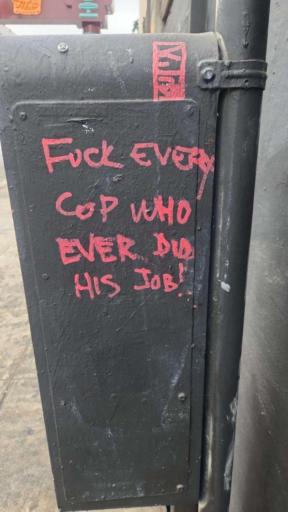 FUCK EVERY
COP WHO
EVER DID
HIS JOB!